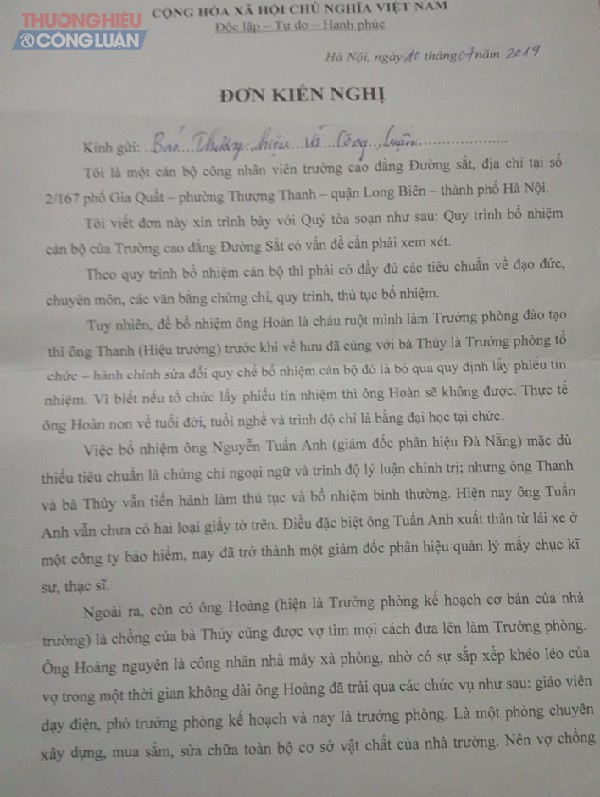 THƯƠNGHIỆU
&CÔNGLUẬN
CỘNG HÒA XÃ HỘI CHỦ NGHĨA VIỆT NAM
Độc lập – Tự do – Hạnh phúc
Hà Nội, ngày 10 tháng 07 năm 2019
ĐƠN KIẾN NGHỊ
Kính gửi: Báo Thương hiệu và Công Luận
Tôi là một cán bộ công nhân viên trường cao đẳng Đường sắt, địa chỉ tại số
2/167 phố Gia Quất – phường Thượng Thanh – quận Long Biên – thành phố Hà Nội.
Tôi viết đơn này xin trình bày với Quý tòa soạn như sau: Quy trình bổ nhiệm
cán bộ của Trường cao đẳng Đường Sắt có vấn đề cần phải xem xét.
Theo quy trình bổ nhiệm cán bộ thì phải có đầy đủ các tiêu chuẩn về đạo đức,
chuyên môn, các văn bằng chứng chỉ, quy trình, thủ tục bổ nhiệm.
Tuy nhiên, để bổ nhiệm ông Hoàn là cháu ruột mình làm Trưởng phòng đào tạo
thì ông Thanh (Hiệu trưởng) trước khi về hưu đã cùng với bà Thủy là Trưởng phòng tổ
chức – hành chính sửa đổi quy chế bổ nhiệm cán bộ đó là bỏ qua quy định lấy phiếu tín
nhiệm. Vì biết nếu tổ chức lấy phiếu tín nhiệm thì ông Hoàn sẽ không được. Thực tế
ông Hoàn non về tuổi đời, tuổi nghề và trình độ chỉ là bằng đại học tại chức.
Việc bổ nhiệm ông Nguyễn Tuấn Anh (giám đốc phân hiệu Đà Nẵng) mặc dù
thiếu tiêu chuẩn là chứng chỉ ngoại ngữ và trình độ lý luận chính trị; nhưng ông Thanh
và bà Thủy vẫn tiến hành làm thủ tục và bổ nhiệm bình thường. Hiện nay ông Tuấn
Anh vẫn chưa có hai loại giấy tờ trên. Điều đặc biệt ông Tuấn Anh xuất thân từ lái xe ở
một công ty bảo hiểm, nay đã trở thành một giám đốc phân hiệu quản lý mấy chục kĩ
sư, thạc sĩ.
Ngoài ra, còn có ông Hoàng (hiện là Trưởng phòng kế hoạch cơ bản của nhà
trường) là chồng của bà Thủy cũng được vợ tìm mọi cách đưa lên làm Trưởng phòng.
Ông Hoàng nguyên là công nhân nhà máy xà phòng, nhờ có sự sắp xếp khéo léo của
vợ trong một thời gian không dài ông Hoàng đã trải qua các chức vụ như sau: giáo viên
dạy điện, phó trưởng phòng kế hoạch và nay là trưởng phòng. Là một phòng chuyên
xây dựng, mua sắm, sửa chữa toàn bộ cơ sở vật chất của nhà trường. Nên vợ chồng